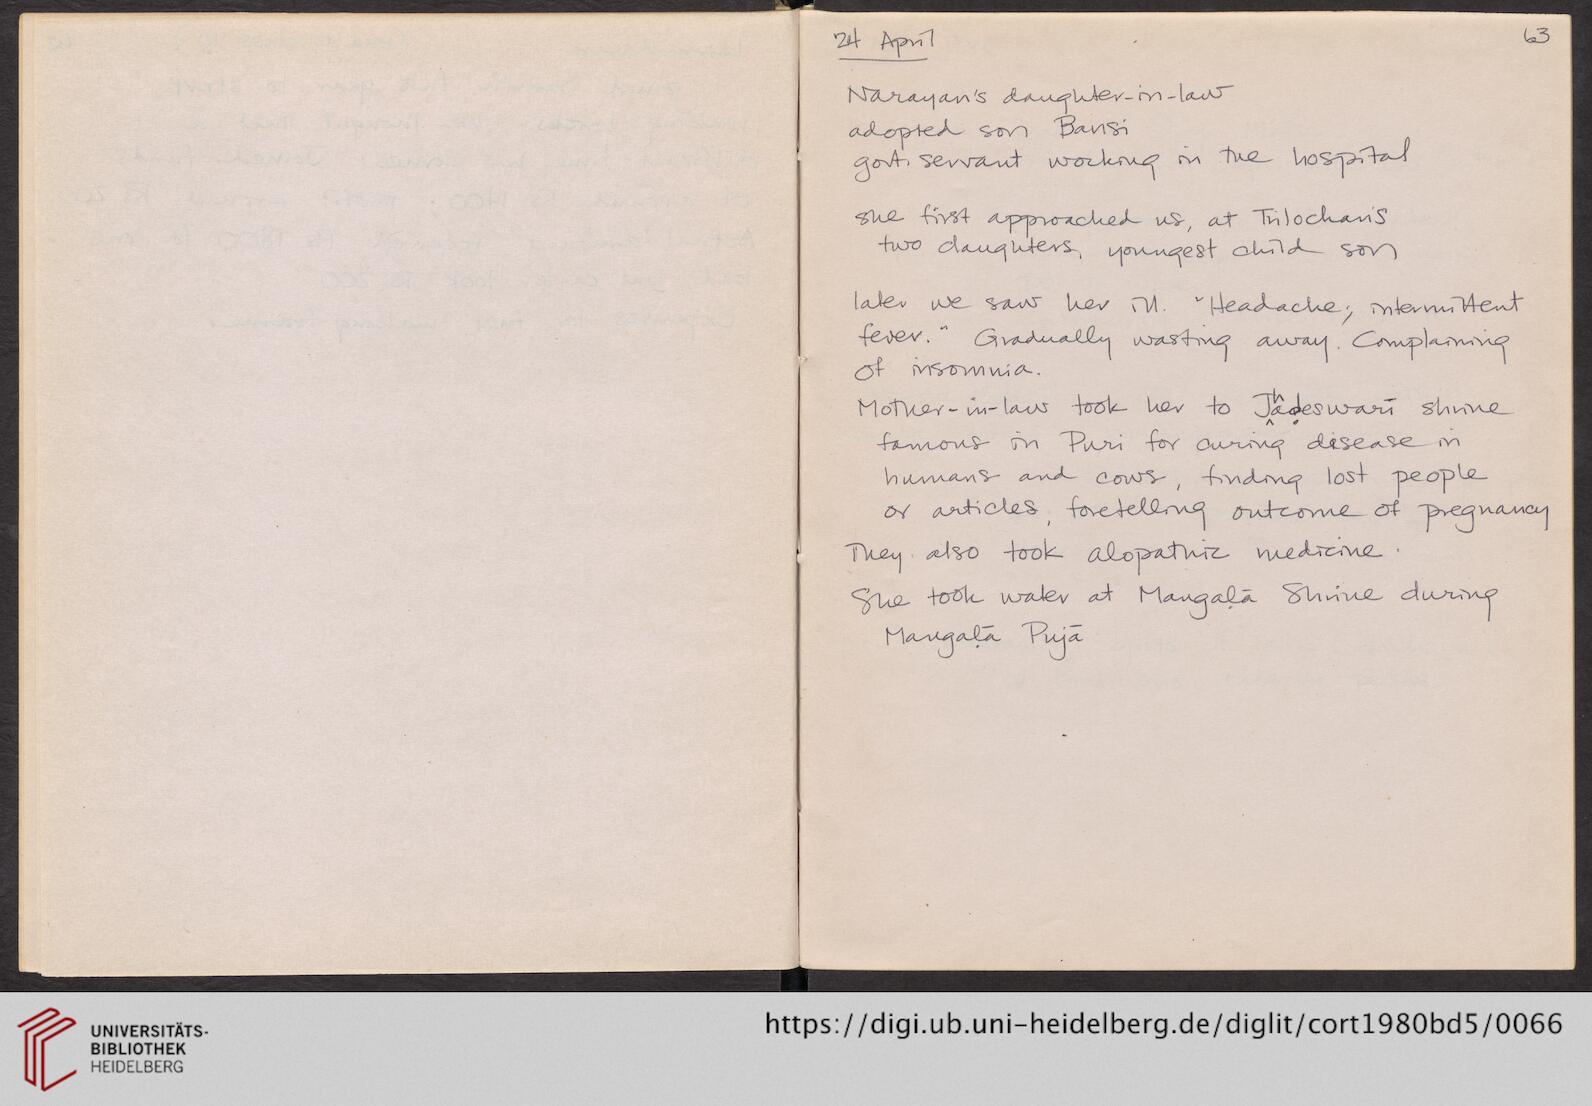 24 April
63
Narayan's daughter-in-law
adopted son Bansi
govt. servant working in the hospital
she first approached us, at Trilochan's
two daughters, youngest child son
later we saw her ill. "Headache, intermittent
fever." Gradually wasting away. Complaining
of insomnia.
Mother-in-law took her to Jhāḍeswarī shrine
famous in Puri for curing disease in
humans and cows, finding lost people
or articles, foretelling outcome of pregnancy
They also took alopathic medicine.
She took water at Maṅgaḷā Shrine during
Maṅgaḷā Pujā
UNIVERSITÄTS-
BIBLIOTHEK
HEIDELBERG
https://digi.ub.uni-heidelberg.de/diglit/cort1980bd5/0066